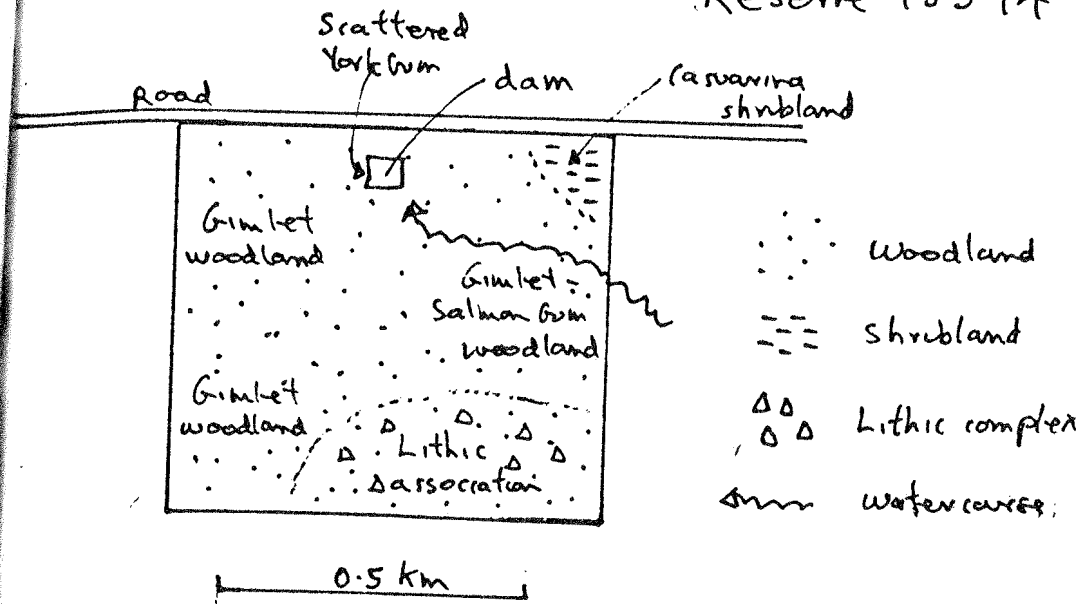 Reserve
Scattered
York Gum
dam
Casuarina
shrubland
Road
Gimlet
woodland
Gimlet -
Salmon Gum
woodland
Gimlet
woodland
Lithic
association
Woodland
Shrubland
Lithic complex
Watercourse
0.5 km